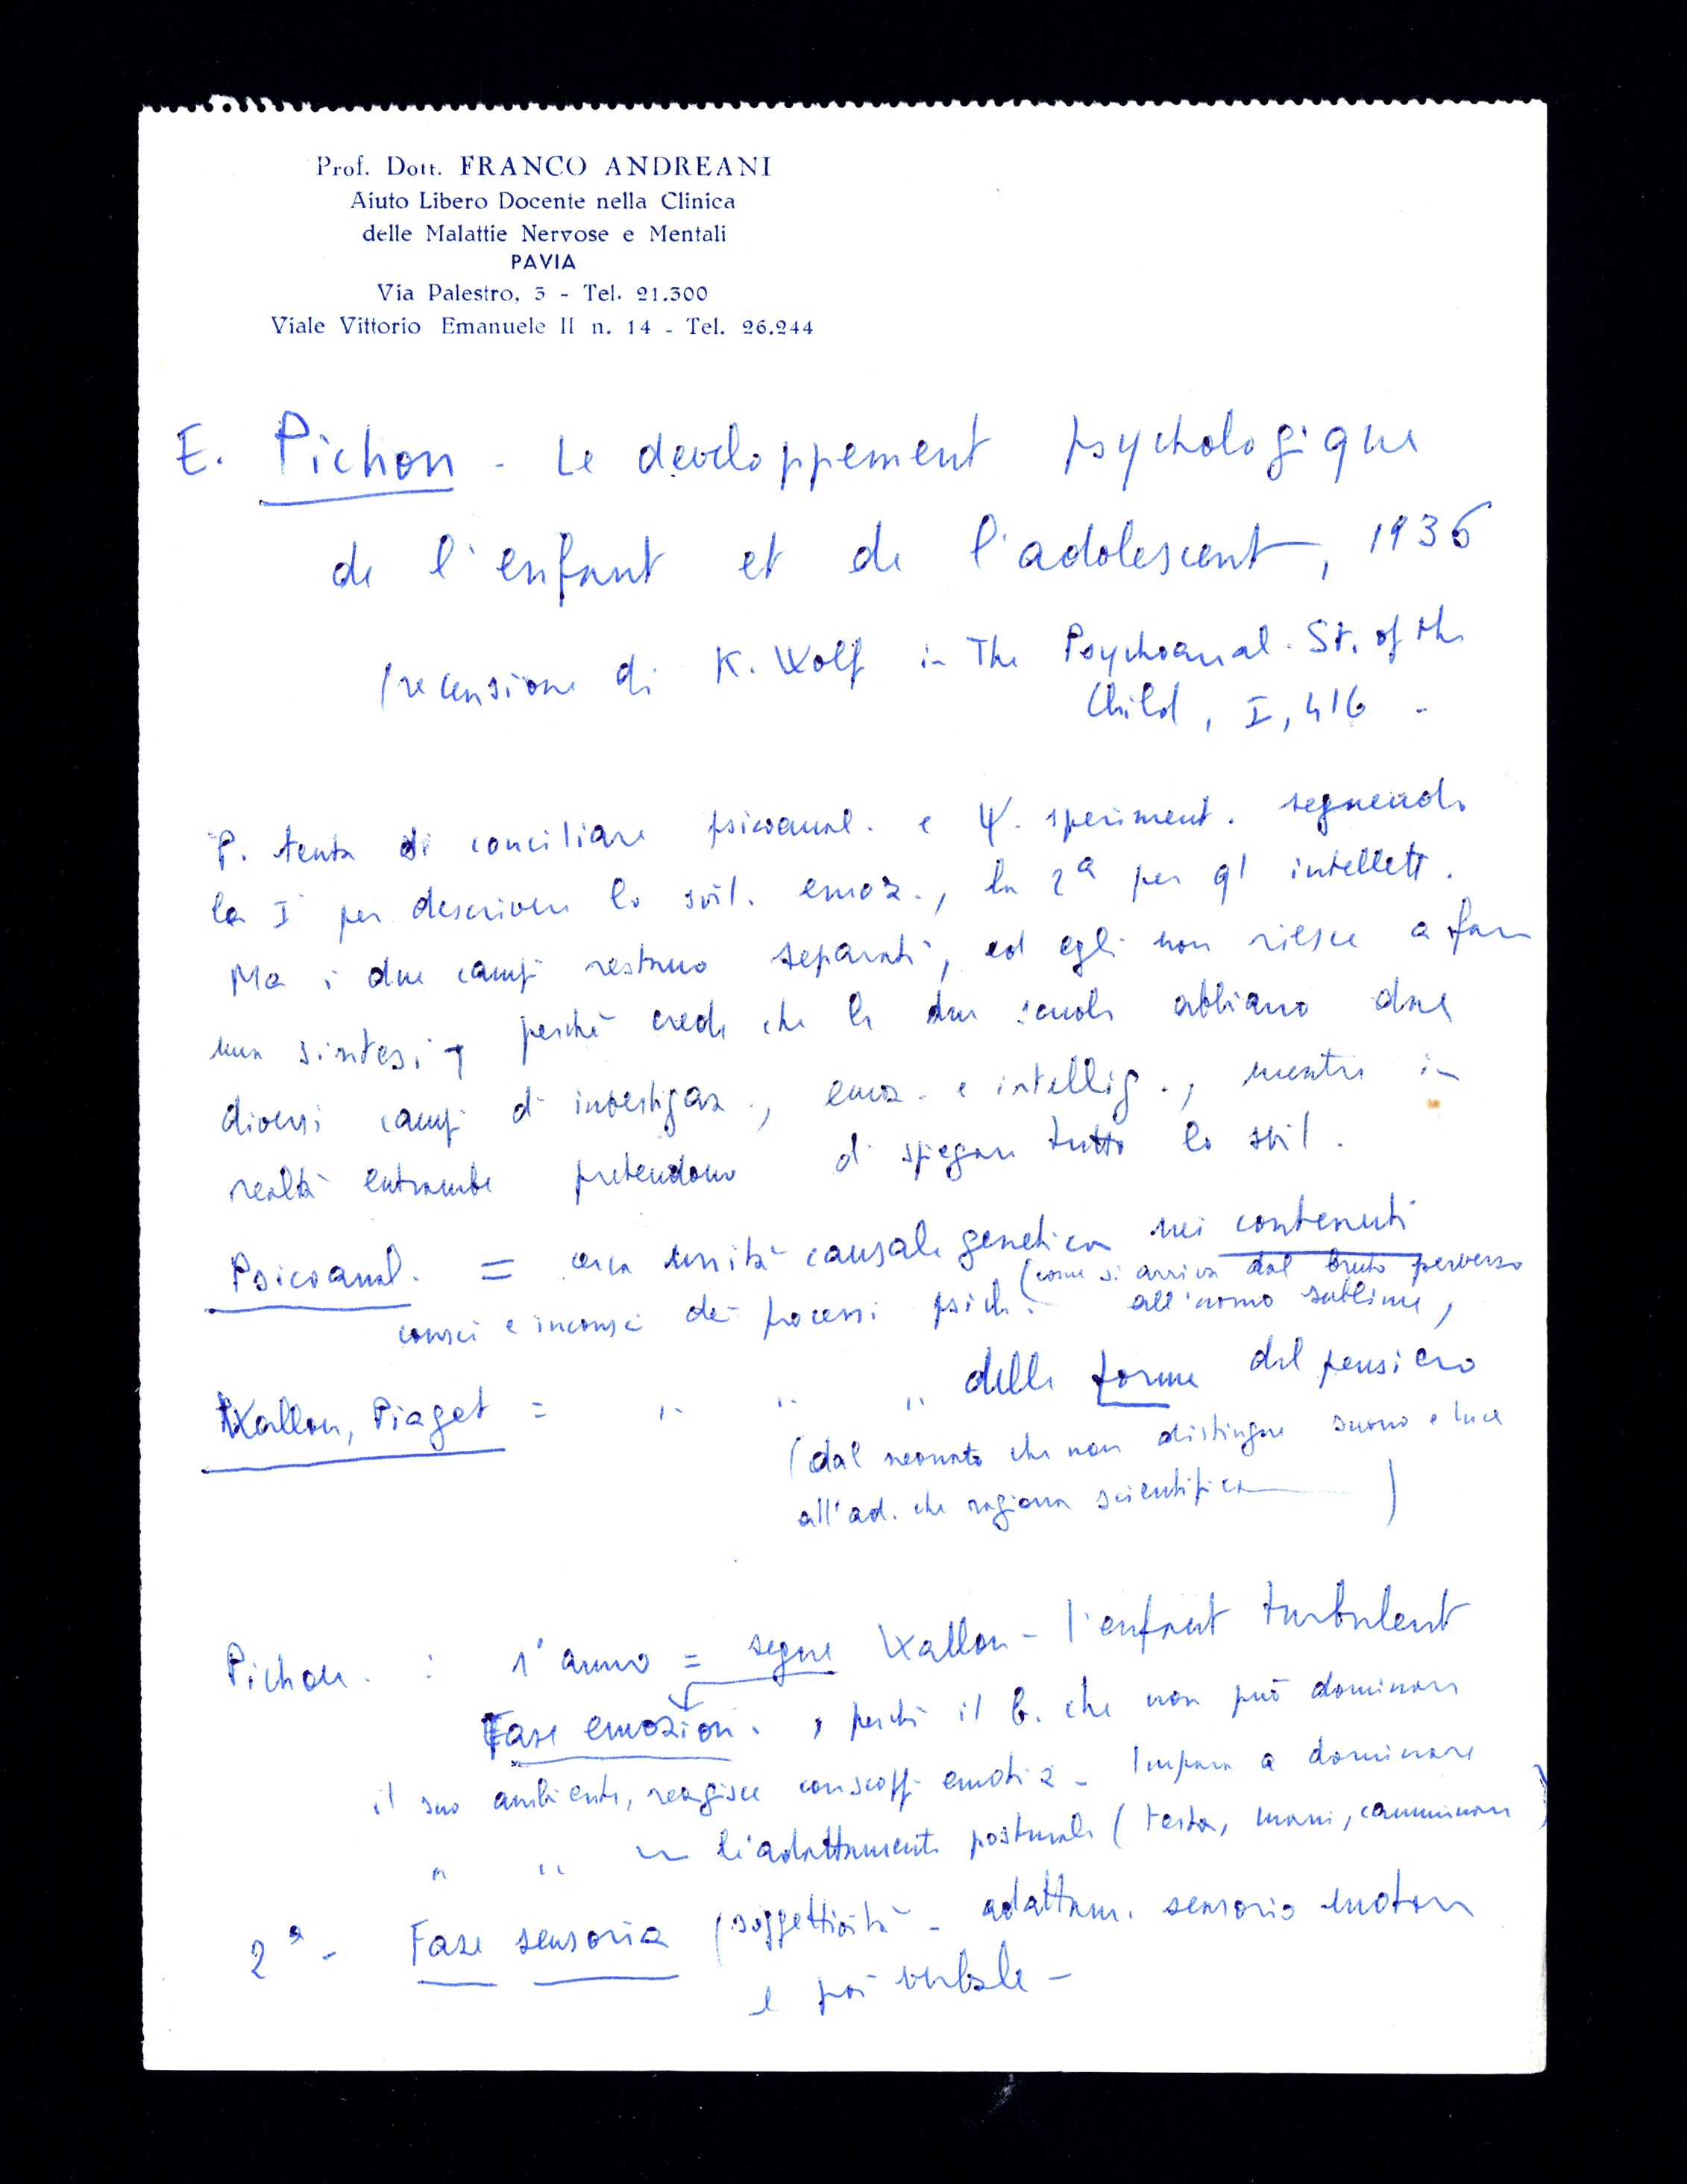 Prof. Dott. FRANCO ANDREANI
Aiuto Libero Docente nella Clinica
delle Malattie Nervose e Mentali
PAVIA
Via Palestro, 3 - Tel. 21.300
Viale Vittorio Emanuele II n. 14 - Tel. 26.244
E. Pichon - Le developpement psychologique
de l'enfant et de l'adolescent, 1936
(recensione di K. Wolf in The Psychoanal. St. of the
Child, I, 416 -
P. tenta di conciliare psicoanal. e ψ. speriment. seguendo
la I per descrivere lo svil. emoz., la 2ª per ql intellett.
Ma i due campi restano separati, ed egli non riesce a fare
una sintesi, perchè crede che le due scuole abbiano due
diversi campi di investigaz., emoz. e intellig., mentre in
realtà entrambe pretendono di spiegare tutto lo svil.
Psicoanal. = cerca unità causale genetica nei contenuti
consci e inconsci dei processi psich. (come si arriva dal bruto perverso
all'uomo sublime,
Wallon, Piaget = " " " delle forme del pensiero
(dal neonato che non distingue suono e luce
all'ad. che ragiona scientifica)
Pichon : 1° anno = segue Wallon - l'enfant turbulent
Fase emozion. , perchè il b. che non può dominare
il suo ambiente, reagisce con scoppi emotiz - Impara a dominare
" " l'adattamento posturale (testa, mani, camminare)
2ª - Fase sensoria (soggettività - adattam. sensorio motore
e poi verbale -